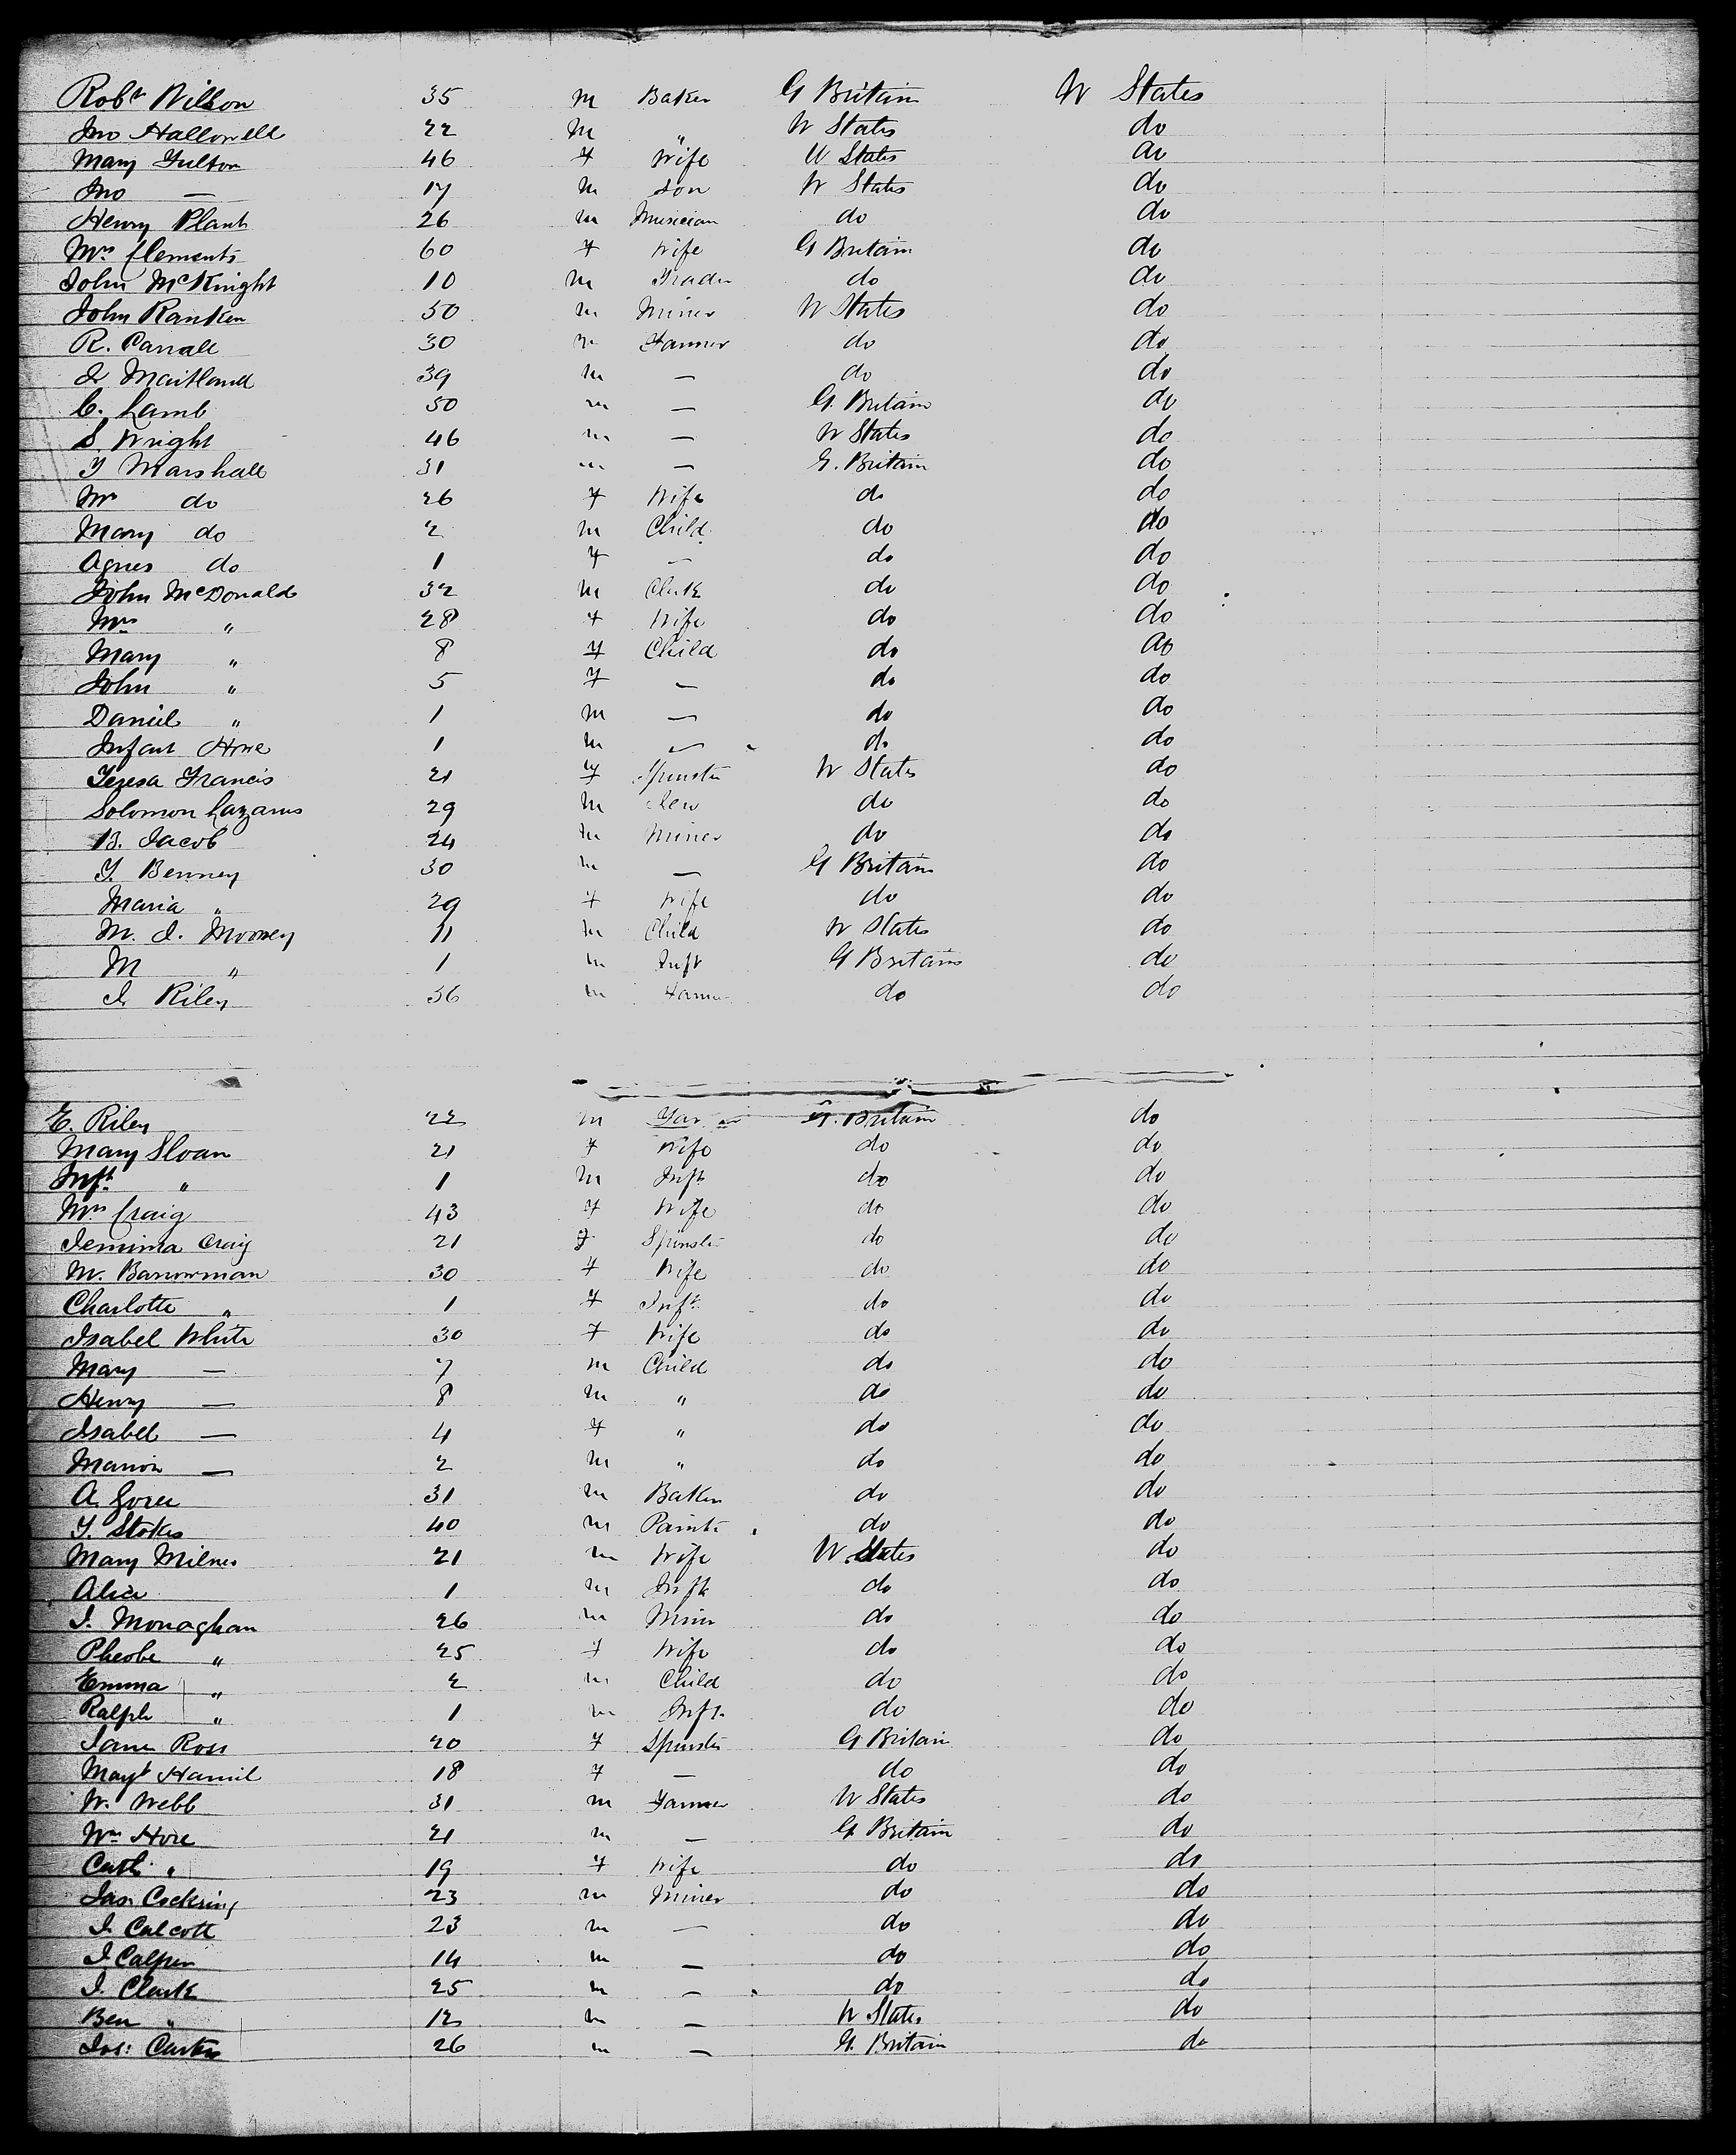 Robt Wilson 35 m Baker G Britain U States
Jno Hallowell 22 m " U States do
Mary Fulton 46 f Wife U States do
Jno — 17 m Son U States do
Henry Plant 26 m Musician do do
Mrs Clements 60 f Wife G Britain do
John McKnight 10 m Trader do do
John Ranken 50 m Miner U States do
R. Carrall 30 m Farmer do do
J Maitland 39 m — do do
C. Lamb 50 m — G. Britain do
S. Wright 46 m — U States do
T Marshall 31 m — G. Britain do
Mrs do 26 f Wife do do
Mary do 2 m Child do do
Agnes do 1 f — do do
John McDonald 32 m Clerk do do
Mrs " 28 f Wife do do
Mary " 8 f Child do do
John " 5 f — do do
Daniel " 1 m — do do
Infant Hore 1 m — do do
Teresa Francis 21 f Spinster U States do
Solomon Lazarus 29 m Jew do do
B. Jacob 24 m Miner do do
T. Benney 30 m — G Britain do
Maria " 29 f Wife do do
M. J. Mooney 11 m Child U States do
M " 1 m Inft G Britain do
J. Riley 36 m Farmer do do
E. Riley 22 m G. Britain do
Mary Sloan 21 f Wife do do
Inft " 1 m Inft do do
Mrs Craig 43 f Wife do do
Jemima Craig 21 f Spinster do do
M. Barrowman 30 f Wife do do
Charlotte " 1 f Inft do do
Isabel White 30 f Wife do do
Mary — 7 m Child do do
Henry — 8 m " do do
Isabel — 4 f " do do
Marion — 2 m " do do
A. 31 m Baker do do
T. Stokes 40 m Painter do do
Mary Milnes 21 m Wife U. States do
Alice 1 m Inft do do
J. Monaghan 26 m Miner do do
Pheobe " 25 f Wife do do
Emma " 2 m Child do do
Ralph " 1 m Inft do do
Jane Ross 20 f Spinster G Britain do
Magt Hamil 18 f — do do
W. Webb 31 m Farmer U States do
Wm Hore 21 m — G Britain do
Cath " 19 f Wife do do
Jas. Cockring 23 m Miner do do
J. Calcott 23 m — do do
J Calpin 14 m — do do
J. Clark 25 m — do do
Ben " 12 m — U States do
Jos: Carter 26 m — G. Britain do